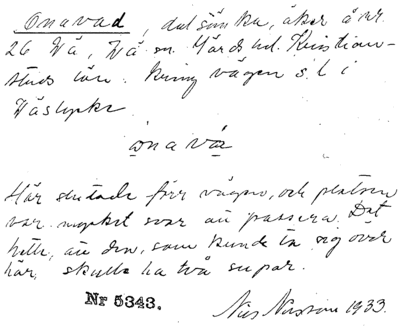 Onavad, dalsänka, åker å nr
26 Vä, Vä sn. Gärds hd. Kristian-
stads län. Kring vägen s. l. i
Väslycke
ɷnavǻ
Här slutade förr vägen, och platsen
var mycket svår att passera. Det
hette, att den, som kunde ta sig över
här, skulle ha två supar.
Nr 5343.
Nils 1933.